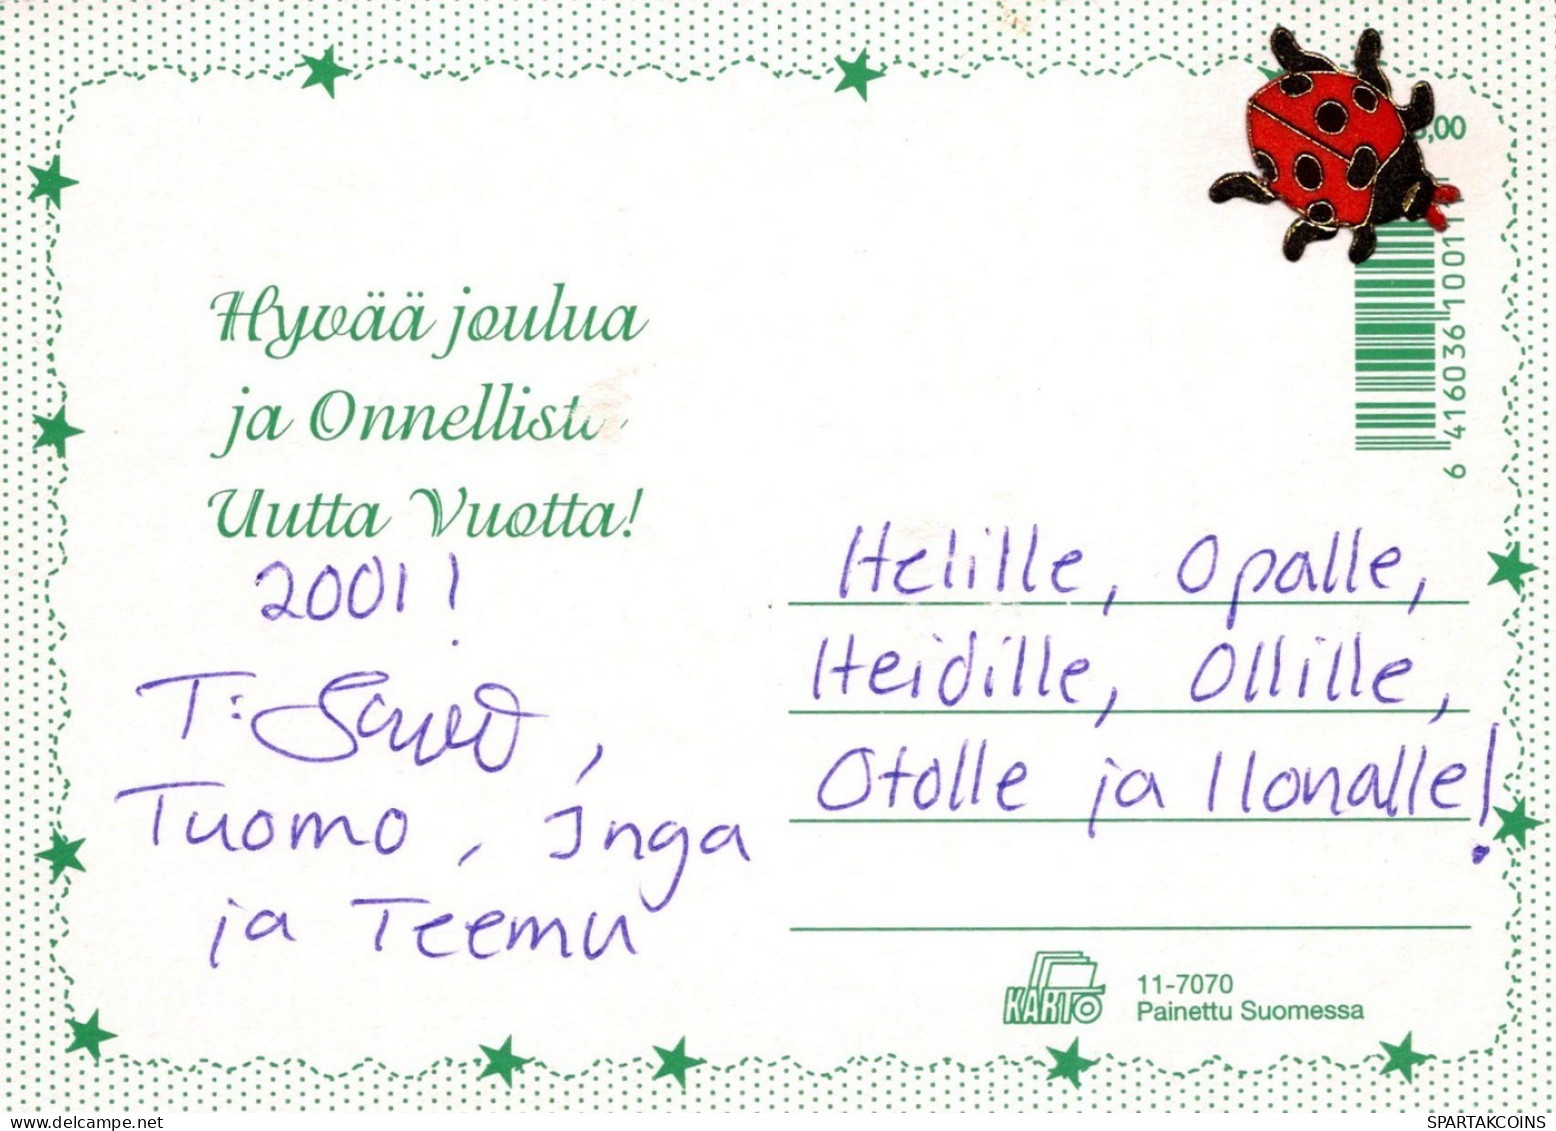 Hyvää joulua
ja Onnellista
Uutta Vuotta!
2001!
T:
Tuomo, Inga
ja Teemu
,00
6 416036 1001
Helille, Opalle,
Heidille, Ollille,
Otolle ja Ilonalle!
KARTO
11-7070
Painettu Suomessa
SPARTAKCOINS